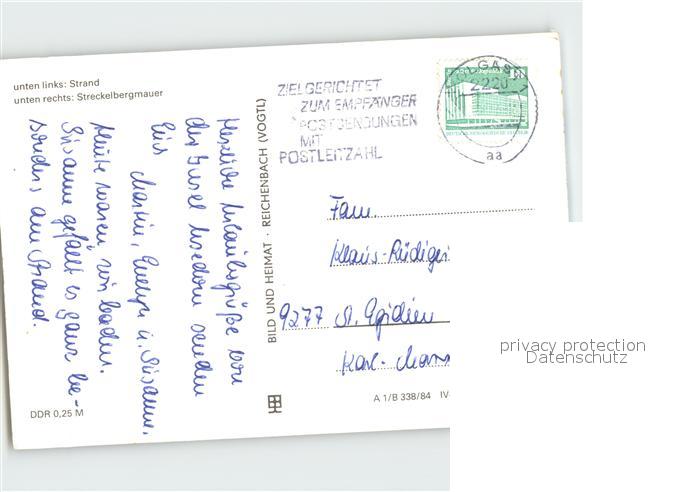 unten links: Strand
unten rechts: Streckelbergmauer
Herzliche Urlaubsgrüße von
der Insel Usedom senden
Euch
Martin, Evelyn u. Susanne.
Heute waren wir baden.
Susanne gefällt es ganz be-
sonders am Strand.
DDR 0,25 M
BILD UND HEIMAT · REICHENBACH (VOGTL)
ZIELGERICHTET
ZUM EMPFÄNGER
POSTSENDUNGEN
MIT
POSTLEITZAHL
OLGAST
22 20
aa
Fam.
Klaus-Rüdiger
9277 St. Egidien
Karl-Marx
A 1/B 338/84 IV
privacy protection
Datenschutz